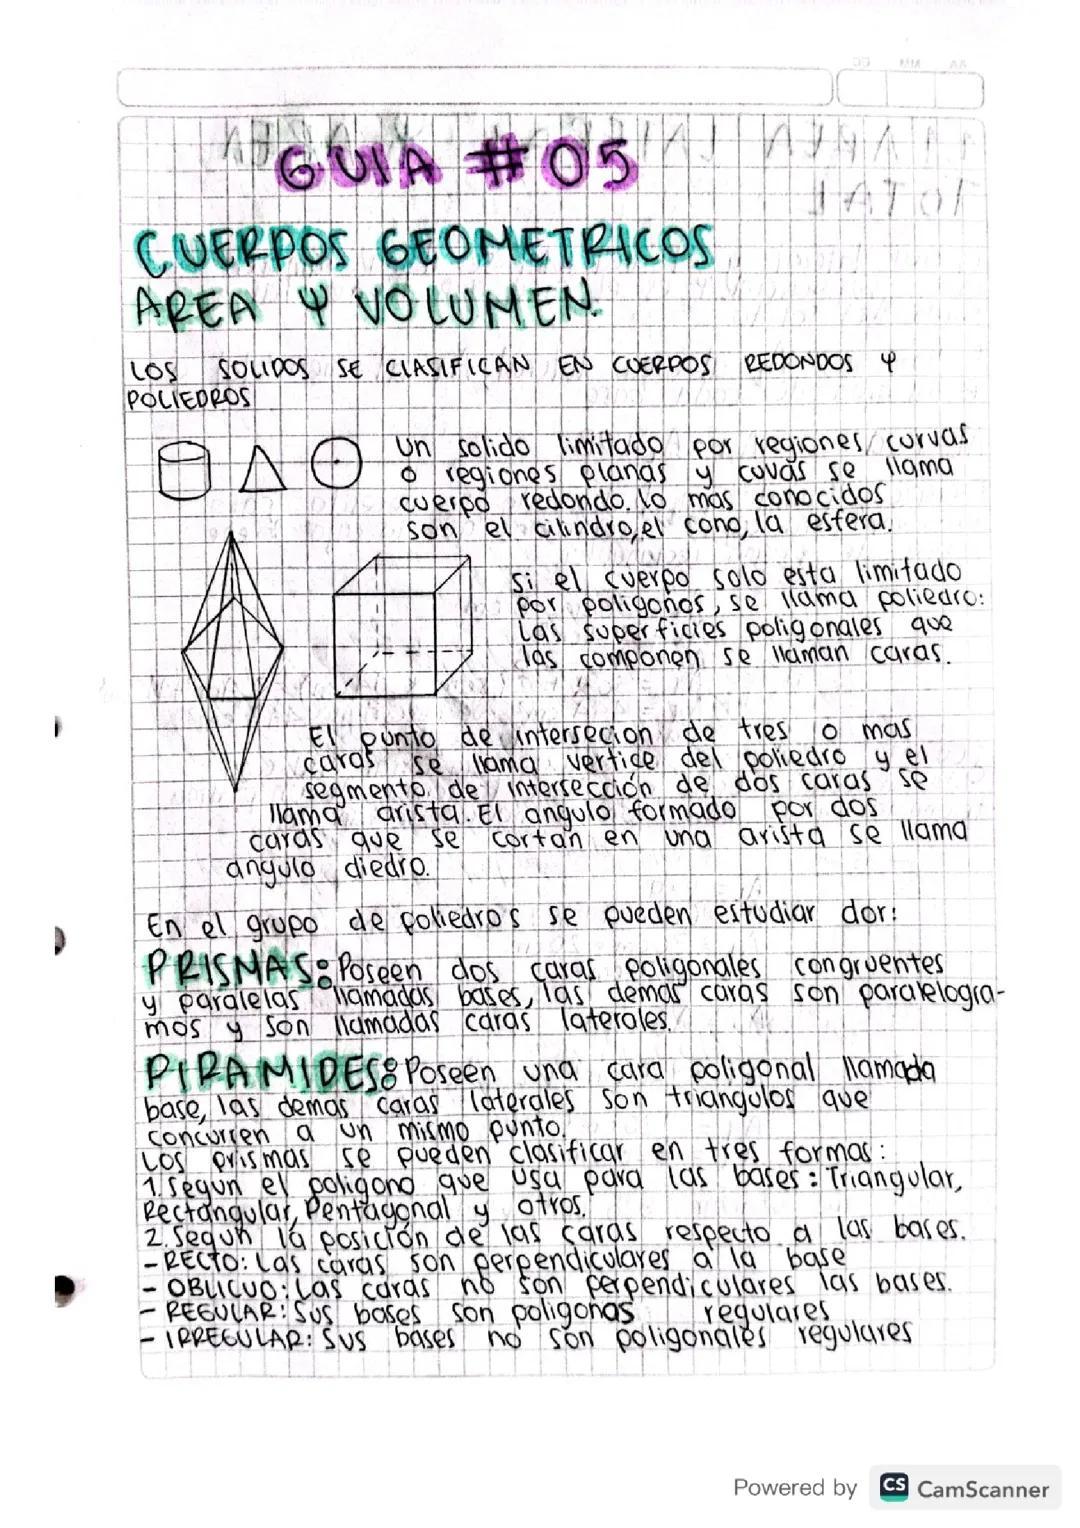 GUIA #05
CUERPOS GEOMETRICOS
AREA Y VOLUMEN.
LOS SOLIDOS SE CLASIFICAN EN CUERPOS REDONDOS Y
POLIEDROS
Un solido limitado por regiones curvas
o regiones planas y cuvas se llama
cuerpo redondo. lo mas conocidos
son el cilindro, el cono, la esfera.
Si el cuerpo solo esta limitado
por poligonos, se llama poliedro:
Las superficies poligonales que
las componen se llaman caras.
El punto de intersecion de tres o mas
caras se llama vertice del poliedro y el
segmento de intersección de dos caras se
llama arista. El angulo formado por dos
caras que se cortan en una arista se llama
angulo diedro.
En el grupo de poliedros se pueden estudiar dor:
PRISMAS: Poseen dos caras poligonales congruentes
y paralelas llamadas bases, las demas caras son paralelogra-
mos y son llamadas caras laterales.
PIRAMIDES: Poseen una cara poligonal llamada
base, las demas caras laterales son triangulos que
concurren a un mismo punto.
Los prismas se pueden clasificar en tres formas:
1. Segun el poligono que usa para las bases: Triangular,
Rectangular, Pentagonal y otros.
2. Segun la posición de las caras respecto a las bases.
- RECTO: Las caras son perpendiculares a la base
- OBLICUO: Las caras no son perpendiculares las bases.
- REGULAR: Sus bases son poligonos regulares
- IRREGULAR: Sus bases no son poligonales regulares
Powered by CS CamScanner